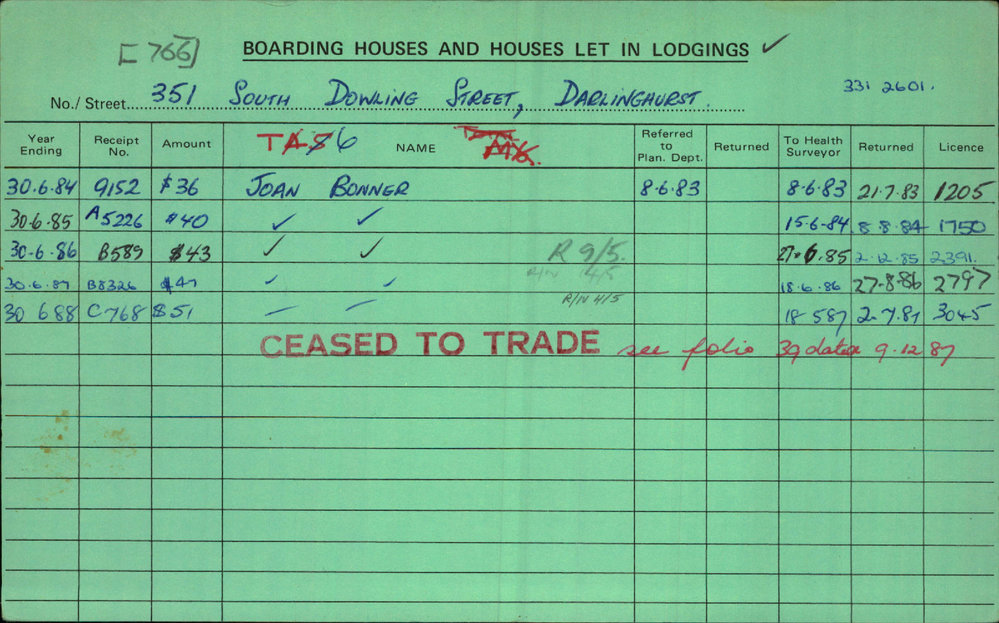 [766]
BOARDING HOUSES AND HOUSES LET IN LODGINGS ✓
No./Street 351 SOUTH DOWLING STREET, DARLINGHURST.
331 2601.
Year Ending Receipt No. Amount NAME Referred to Plan. Dept. Returned To Health Surveyor Returned Licence
30.6.84 9152 $36 JOAN BONNER 8.6.83 8.6.83 21.7.83 1205
30.6.85 A5226 $40 ✓ ✓ 15.6.84 8.8.84 1750
30.6.86 B589 $43 ✓ ✓ R 9/5. 6.85 2.12.85 2391.
30.6.87 B8326 $47 ✓ ✓ R/N 14/5 18.6.86 27.8.86 2797
R/N 4/5
30 6 88 C768 $51 18 5 87 2.7.87 3045
CEASED TO TRADE see folio 39 dated 9.12.87